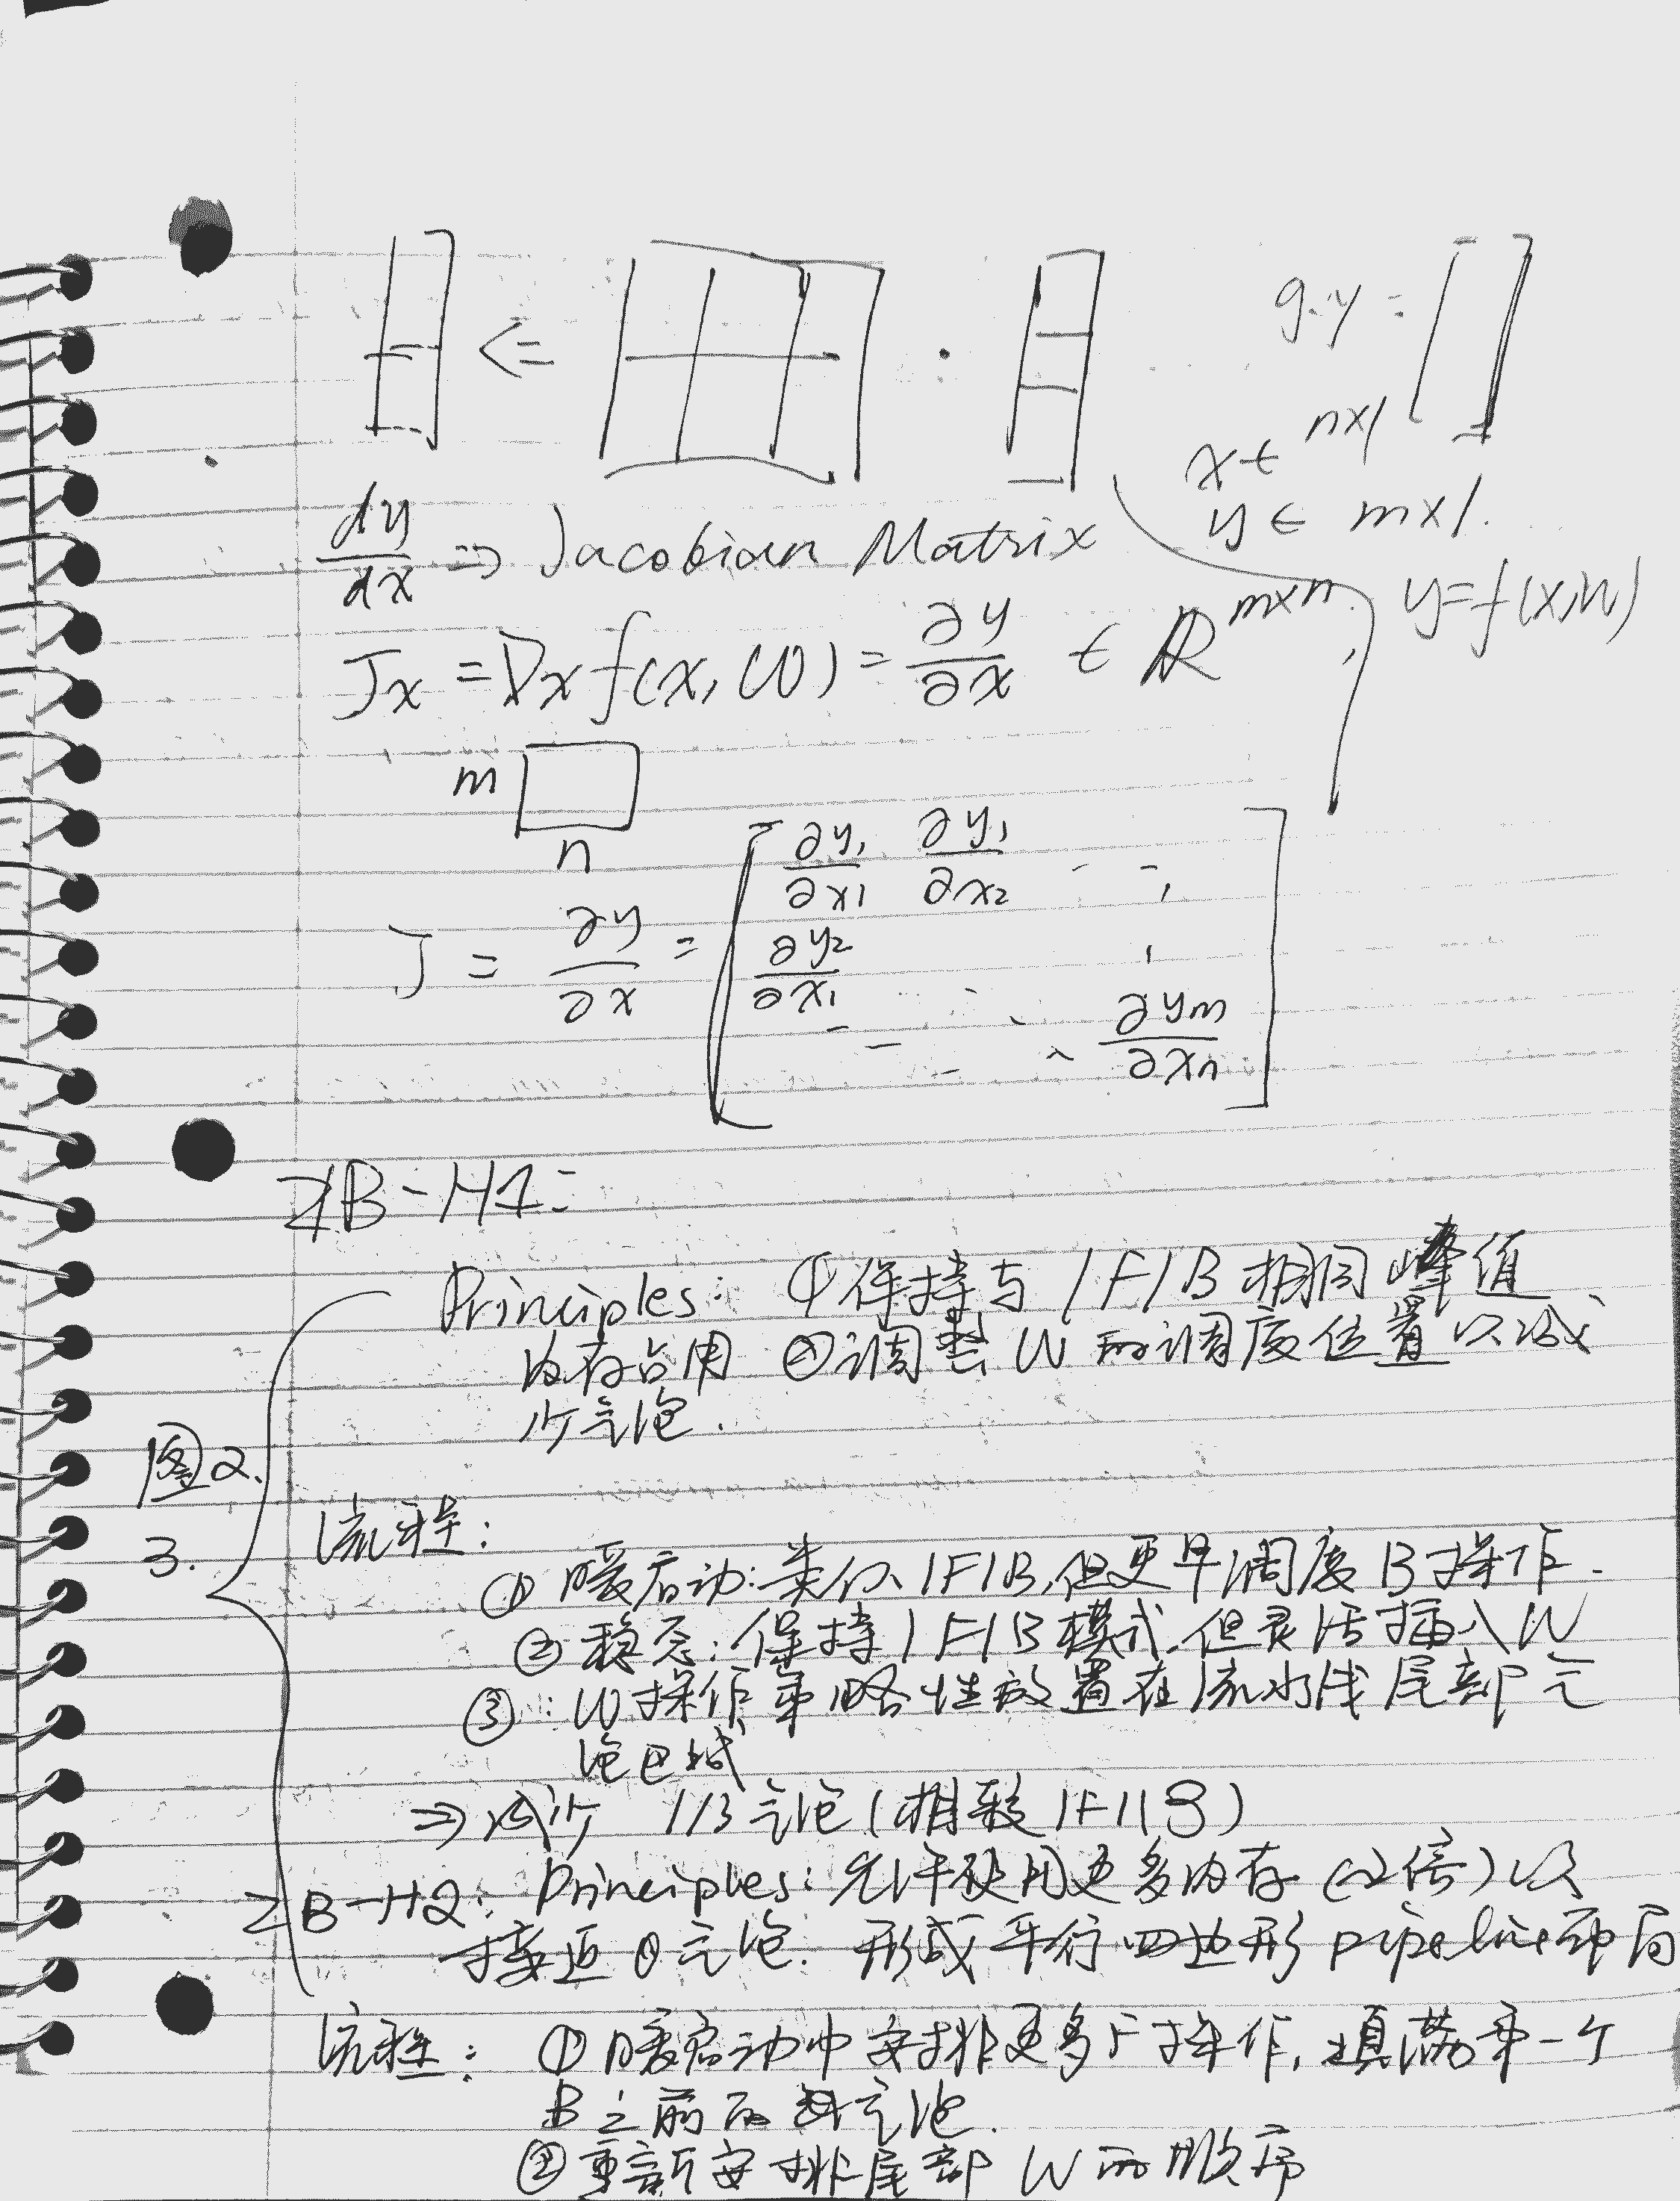 g.y =
x ∈ n×1
y ∈ m×1.
dy/dx ⇒ Jacobian Matrix
J_x = ∇_x f(x, W) = ∂y/∂x ∈ R^{m×n}, y = f(x, W)
m
n
J = ∂y/∂x = [ ∂y_1/∂x_1 ∂y_1/∂x_2 ...
∂y_2/∂x_1
... ∂y_m/∂x_n ]
ZB-H1:
Principles: ①保持与1F1B相同峰值
内存占用 ②调整W的调度位置以减
少气泡.
图2.
3.
流程:
① 暖启动:类似1F1B,但更早调度B操作.
② 稳态:保持1F1B模式,但灵活插入W
③: W操作策略性放置在流水线尾部气
泡区域
⇒减少 1/3气泡(相较1F1B)
ZB-H2: Principles:允许使用更多内存(2倍)以
接近0气泡. 形成平行四边形pipeline布局
流程: ①暖启动中安排更多F操作,填满第一个
B之前的气泡.
②重新安排尾部 W的顺序